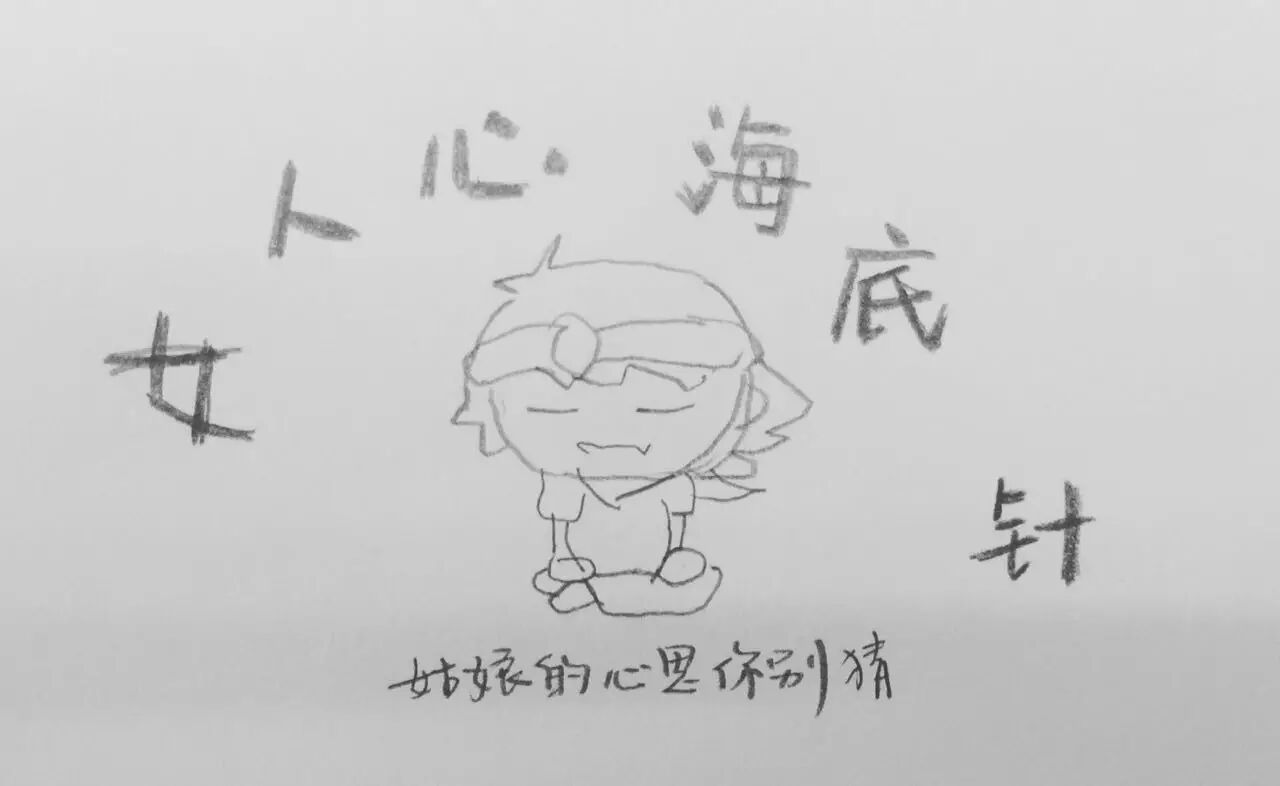 女人心海底针
姑娘的心思你别猜